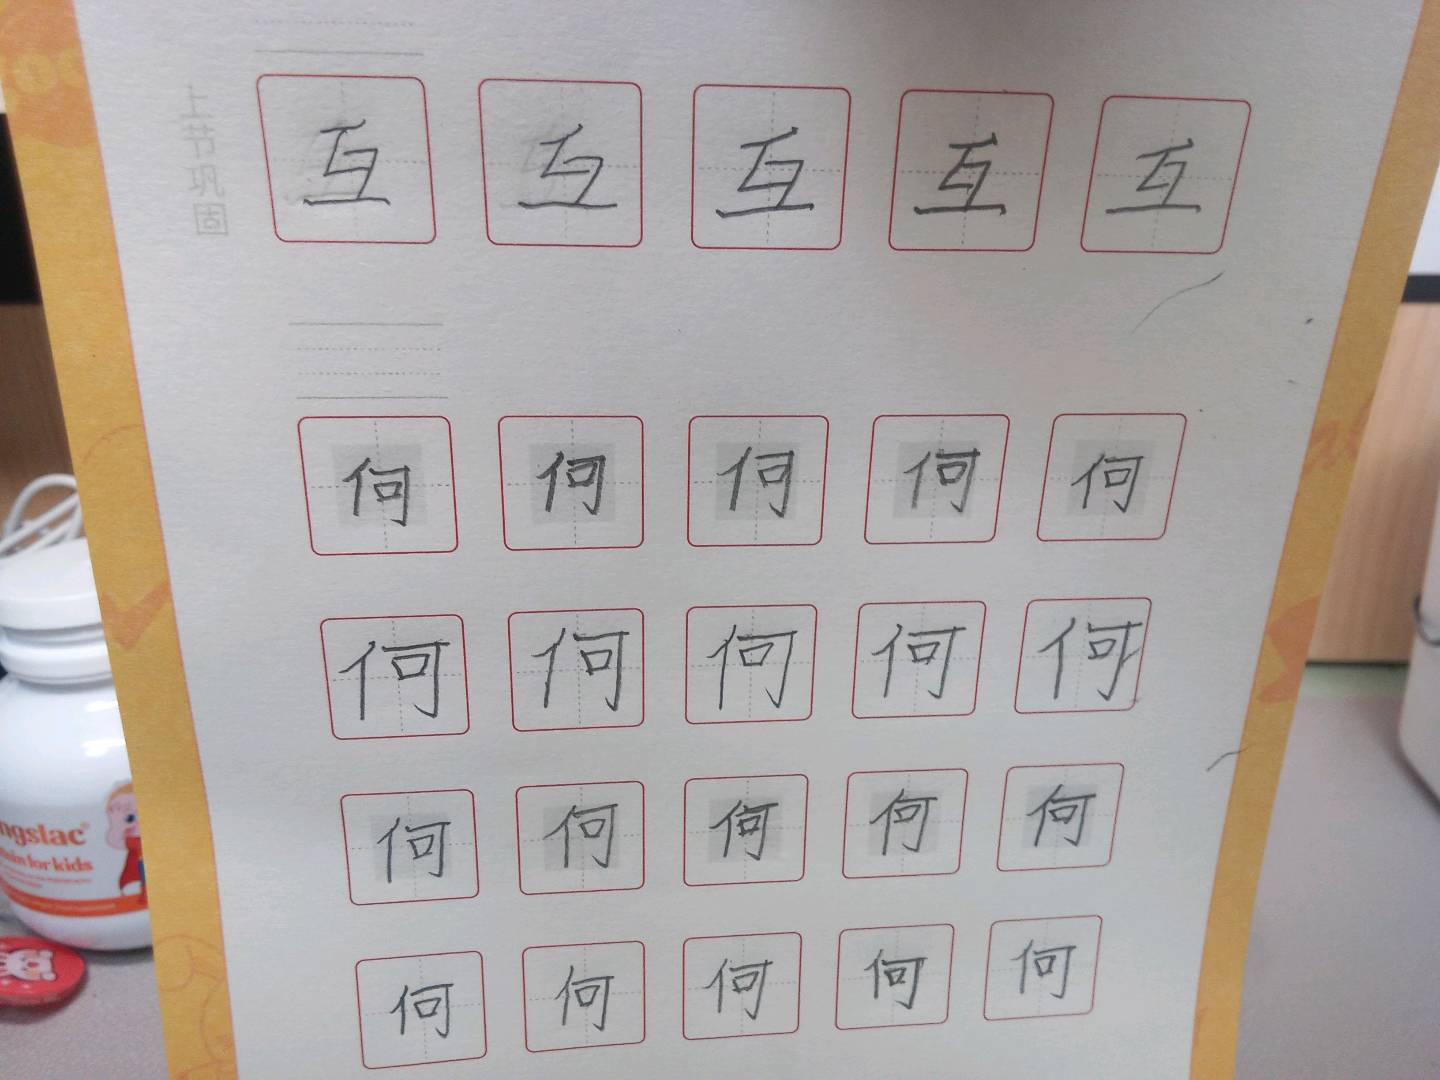 上节巩固
互 互 互 互 互
何 何 何 何 何
何 何 何 何 何
何 何 何 何 何
何 何 何 何 何
ngslac®
for kids